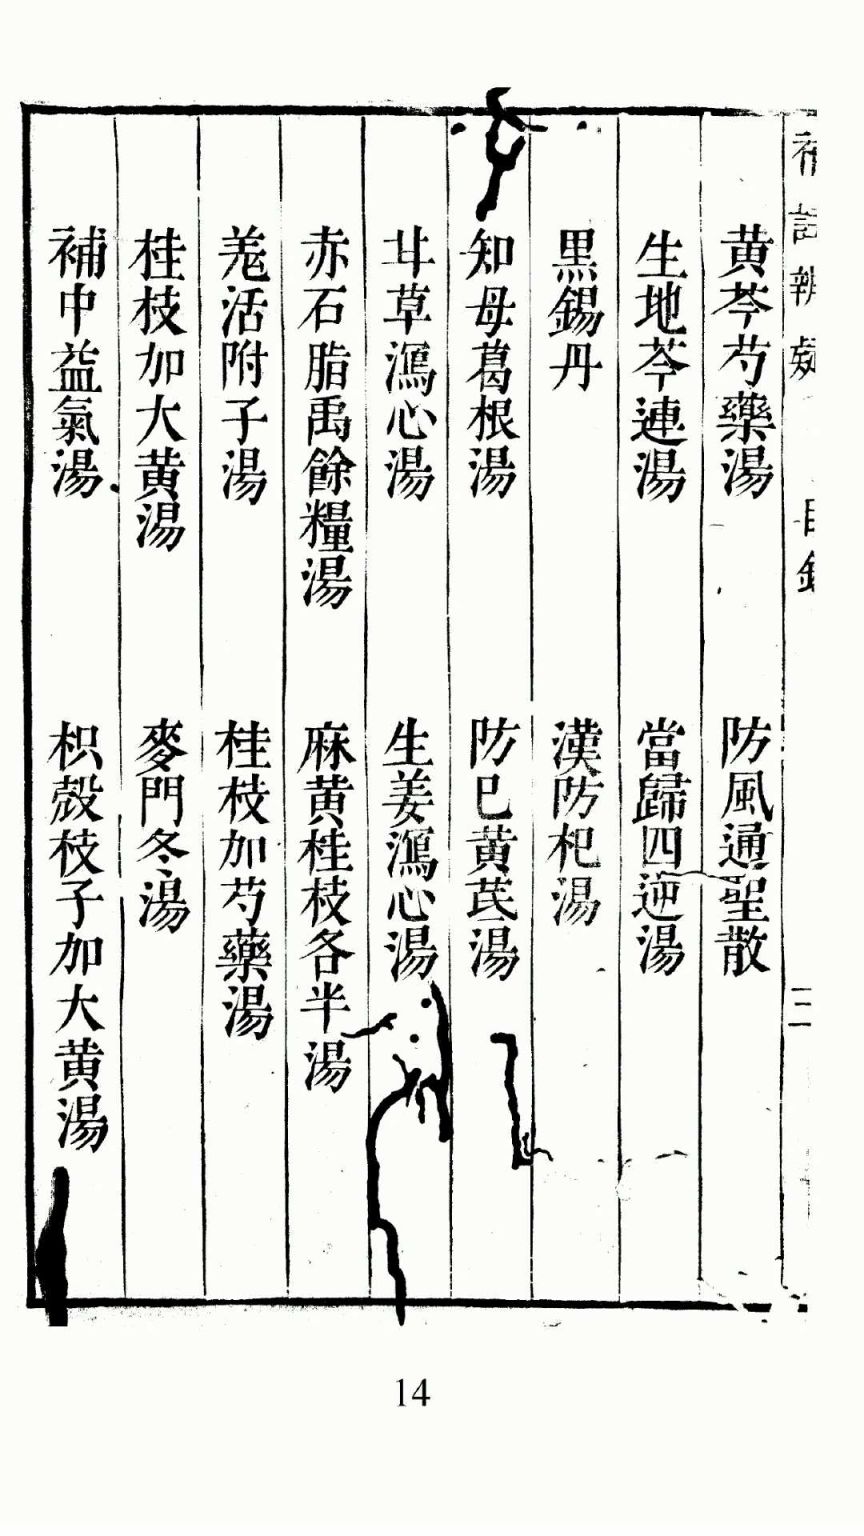 補註辨疑 目錄 三
黄芩芍藥湯 防風通聖散
生地芩連湯 當歸四逆湯
黑錫丹 漢防杞湯
知母葛根湯 防巳黄芪湯
草瀉心湯 生姜瀉心湯
赤石脂禹餘糧湯 麻黄桂枝各半湯
羗活附子湯 桂枝加芍藥湯
桂枝加大黄湯 麥門冬湯
補中益氣湯 枳殼枝子加大黄湯
14